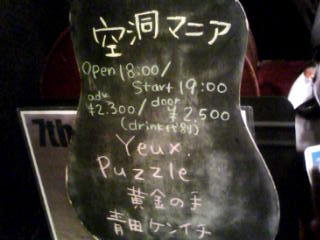 空洞マニア
Open 18:00/
Start 19:00
adv
¥2.300/
door
¥2,500
(drink代別)
Yeux.
Puzzle
黄金の手
青田ケンイチ
7th